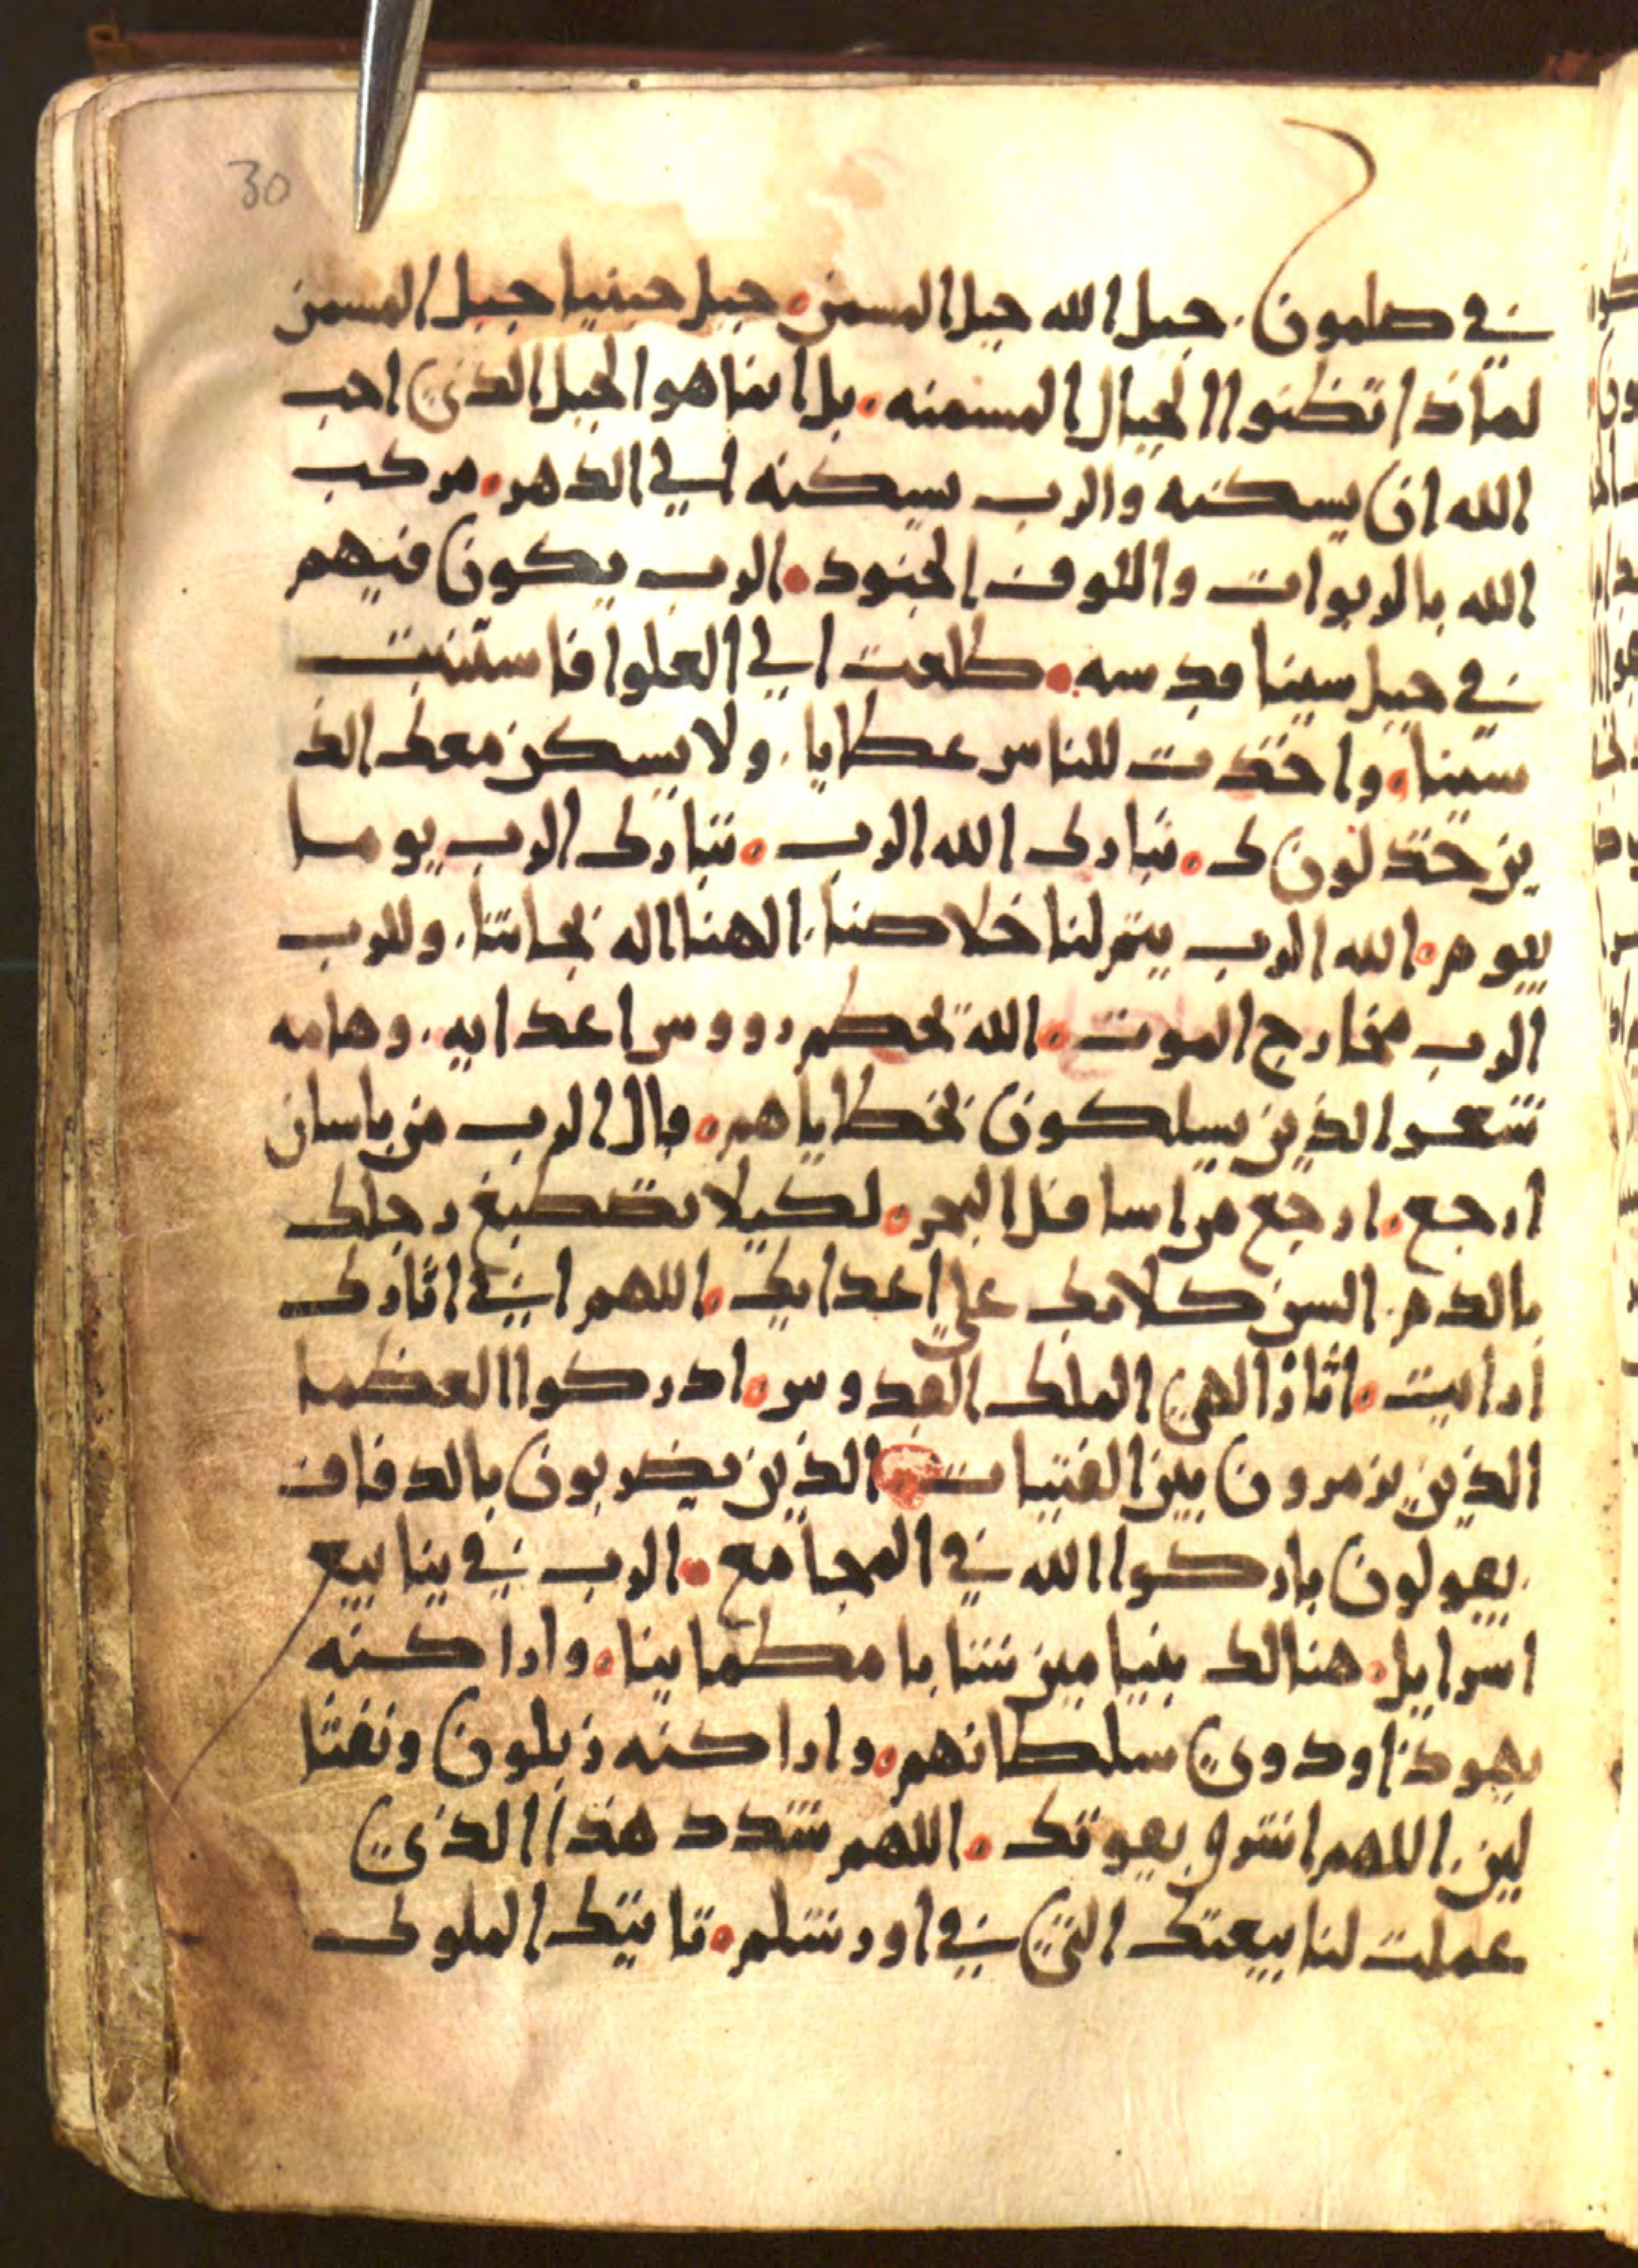 30
في صلمون. جبل الله جبل المسمن. جبل جبنيا جبل المسمن
لماذا تظنوا الجبال المسمنه. بل انما هو الجبل الذي احب
الله ان يسكنه والرب يسكنه الي الدهر. مركب
الله بالربوات واللوف الجنود. الرب يكون فيهم
في جبل سينا قدسه. طلعت الي العلوا فاستبيت
سبينا. واخذت للناس عطايا. ولا يسكن معك الذ
ين خذلون ك. تبارك الله الرب. تبارك الرب يوما
بيوم. الله الرب ييتم لنا خلاصنا. الهنا اله نجاتنا. وللرب
الرب مخارج الموت. الله يحطم رووس اعدايه. وهامه
شعر الذين يسلكون بخطاياهم. قال الرب من باسان
ارجع. ارجع من اسافل البحر. لكيلا تصطبغ رجلك
بالدم. السن كلابك علي اعدايك. اللهم اني اثارك
ارايت. اثار الهي الملك القدوس. ادركوا العظما
الذين يزمرون بين الفتيات. الذين يضربون بالدفاف
يقولون باركوا الله في المجامع. الرب في ينابيع
اسرايل. هنالك بنيامين شابا مطمابنا. واراكنه
يهوذا ودوي سلطانهم. واراكنه زبلون ونفتا
لين. اللهم اشرق بقوتك. اللهم شدد هذا الذي
عملت لنا بيعتك التي في اورشلم. تاتيك الملوك